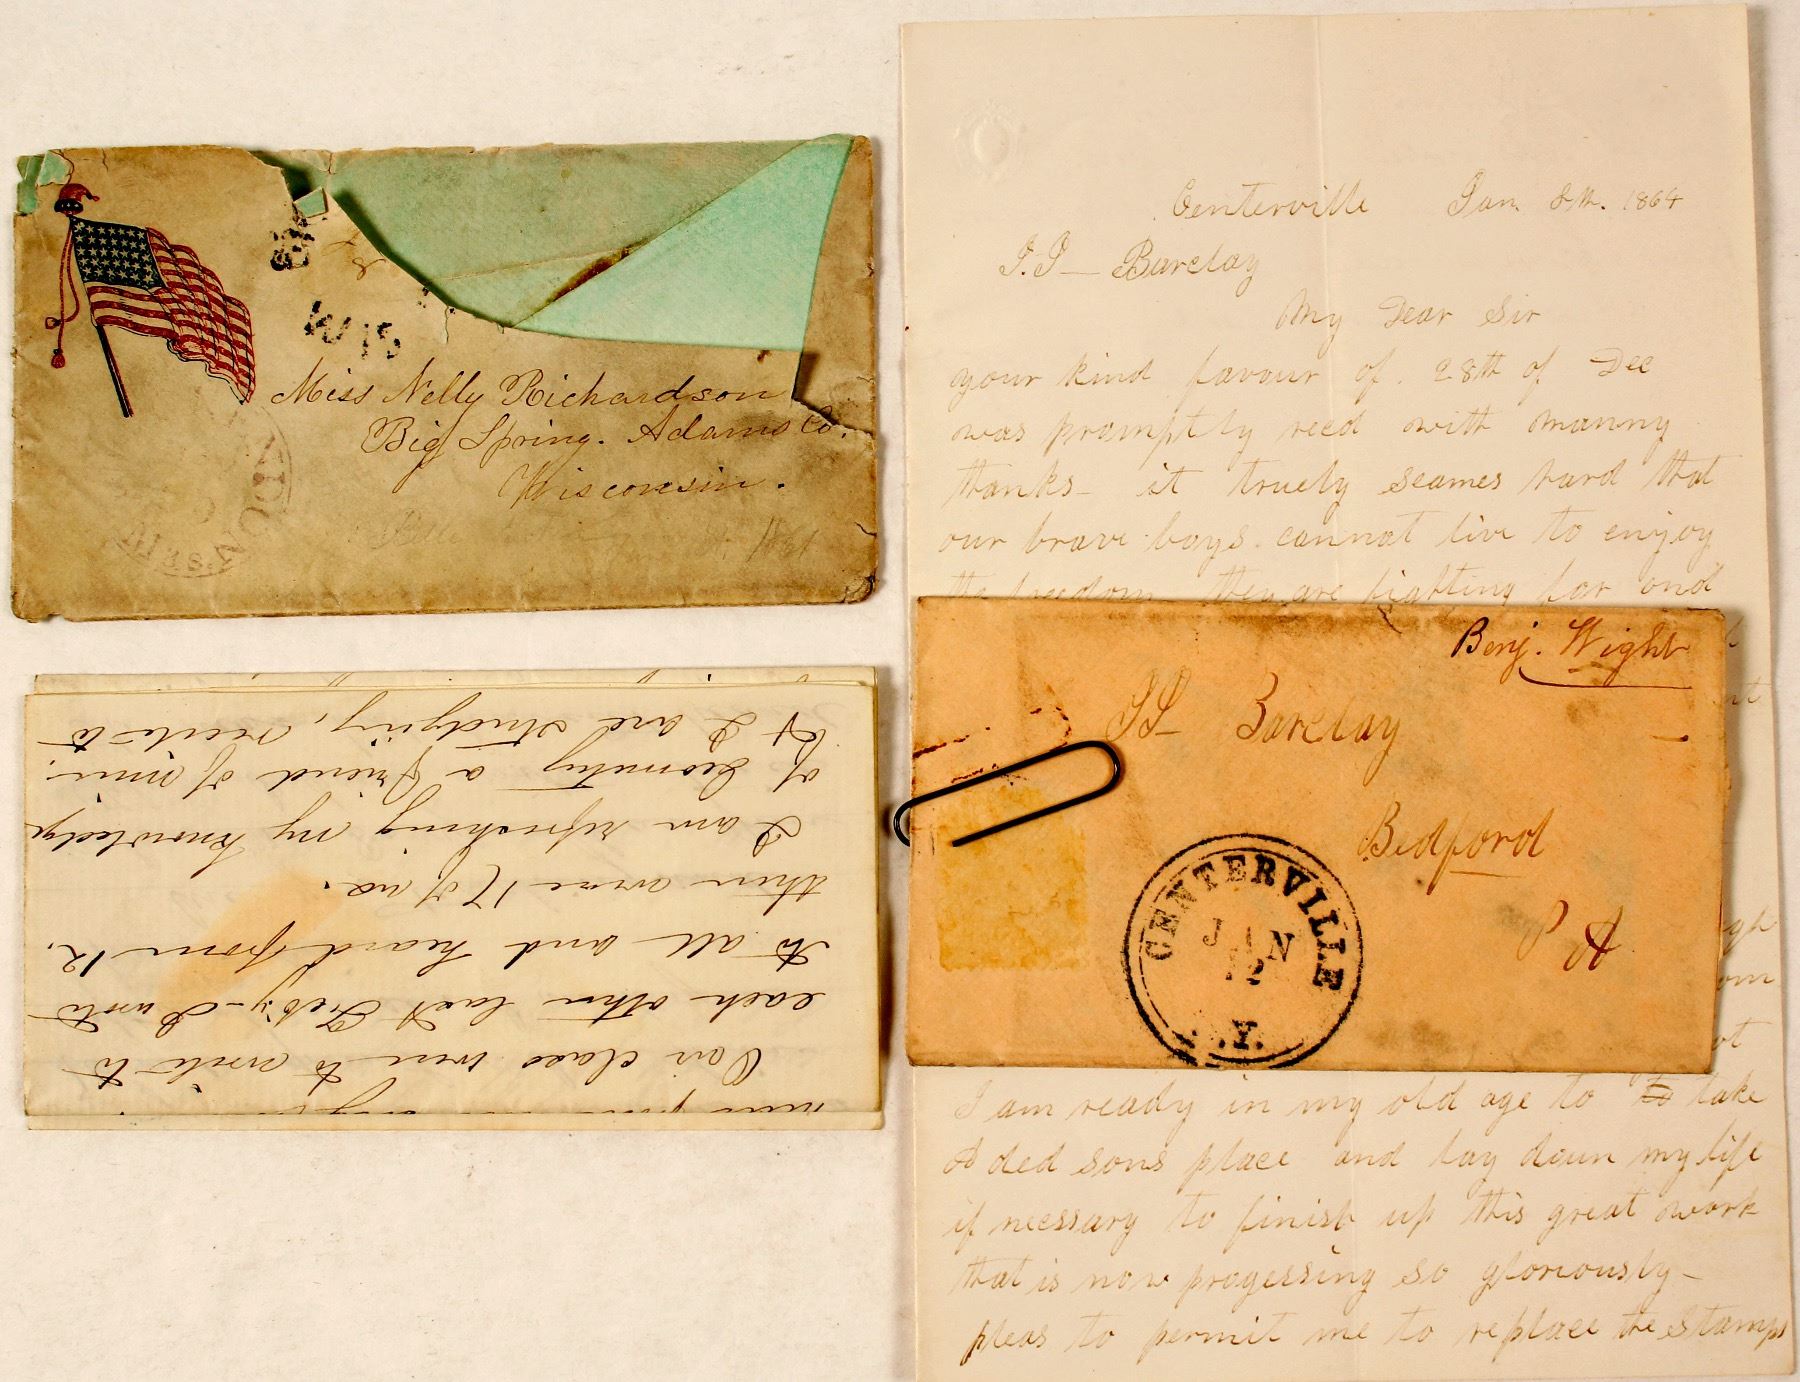 WIS
Miss Nelly Richardson
Big Spring. Adams Co.
Wisconsin.
Our class were to write to
each other last Feb'y - I wrote
to all and heard from 12.
there were 17 of us.
I am refreshing my knowledge
of Geometry a friend of mine
& I are studying, recite to
Centerville Jan. 8th. 1864
J.J - Barclay
My Dear Sir
your kind favour of. 28th of Dec
was promptly recd with manny
thanks - it truely seames hard that
our brave boys. cannot live to enjoy
the freedom they are fighting for and
Benj. Wight
JJ- Barclay
Bedford
PA
CENTERVILLE
JAN
12
.Y.
I am ready in my old age to to take
A ded sons place and lay down my life
if necssary to finish up this great work
that is now progessing so gloriously -
pleas to permit me to replace the stamps